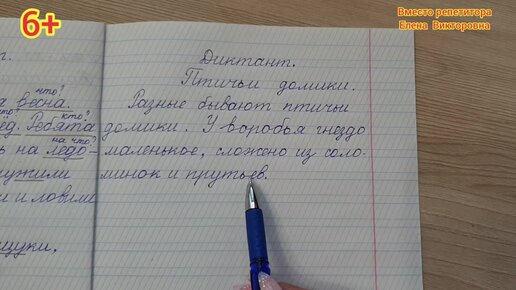 6+
Вместо репетитора
Елена Викторовна
Диктант.
Птичьи домики.
Разные бывают птичьи
домики. У воробья гнездо
маленькое, сложено из соло-
минок и прутьев.
что?
весна.
кто?
Ребята
на что?
на ледо-
и ловили
щуки.